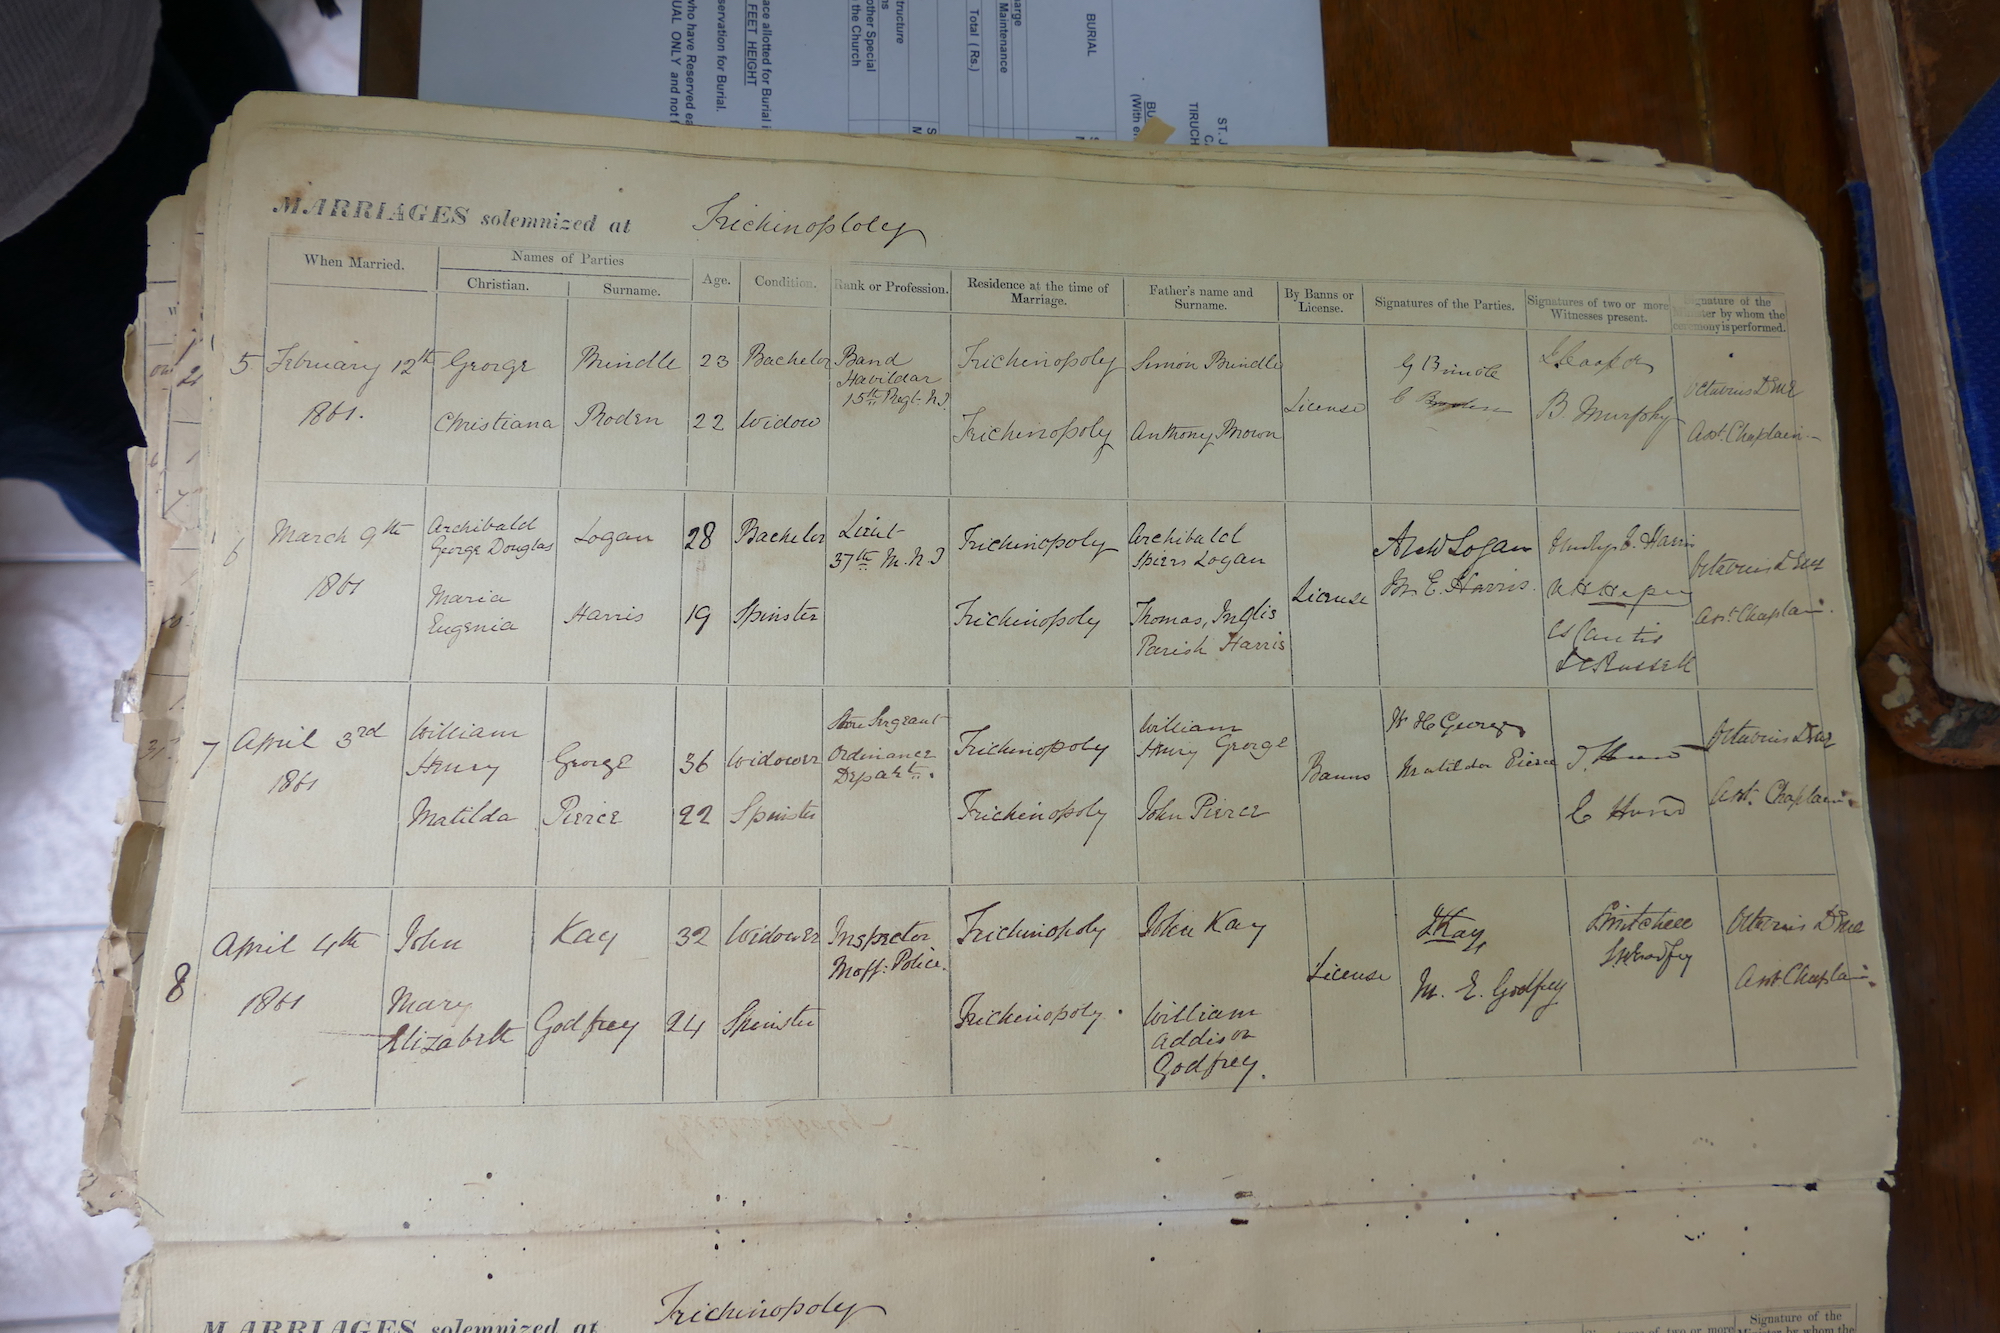 MARRIAGES solemnized at Trichinoploly
When Married.
Names of Parties
Christian.
Surname.
Age.
Condition.
Rank or Profession.
Residence at the time of
Marriage.
Father's name and
Surname.
By Banns or
License.
Signatures of the Parties.
Signatures of two or more
Witnesses present.
Signature of the
Minister by whom the
ceremony is performed.
5 February 12th George Brindle 23 Bachelor Band
Havildar
15th Regt N.I.
Trichinopoly Simon Brindle
1861. Christiana Roden 22 Widow Trichinopoly Anthony Brown
License
G Brindle
C
B. Murphy
Octavius Dene
Asst. Chaplain
6 March 9th Archibald
George Douglas
Logan 28 Bachelor Lieut
37th M.N.I
Trichinopoly Archibald
Spiers Logan
1861 Maria
Eugenia
Harris 19 Spinster Trichinopoly Thomas, Inglis
Parish Harris
License
Logan
M. E. Harris.
Harris
Russell
Octavius Dene
Asst. Chaplain.
7 April 3rd
1861
William
Henry
George 36 Widower Store Sergeant
Ordinance
Depart.
Trichinopoly William
Henry George
Matilda Pierce 22 Spinster Trichinopoly John Pierce
Banns
W H George
Matilda Pierce
Octavius Dene
Asst. Chaplain.
8 April 4th John Kay 32 Widower Inspector
Moff: Police.
Trichinopoly John Kay
1861 Mary
Elizabeth
Godfrey 24 Spinster Trichinopoly. William
Addison
Godfrey.
License
J Kay
M. E. Godfrey
Octavius Dene
Asst Chaplain.
MARRIAGES solemnized at Trichinopoly
Signatures of two or more
Signature of the
Minister by whom the
BURIAL
Total (Rs.)
Maintenance
FEET HEIGHT
servation for Burial.
who have Reserved
ONLY and not
other Special
the Church
ace allotted for Burial
ST. J
TIRUCH